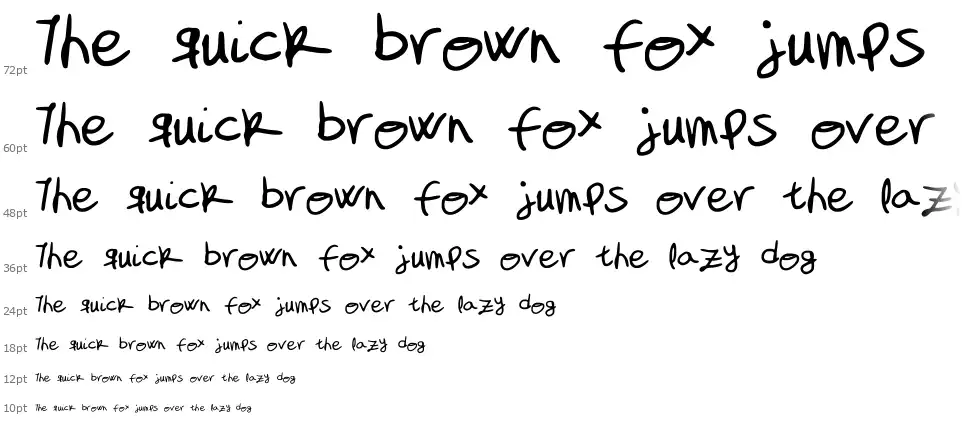 72pt The quick brown fox jumps
60pt The quick brown fox jumps over
48pt The quick brown fox jumps over the lazy
36pt The quick brown fox jumps over the lazy dog
24pt The quick brown fox jumps over the lazy dog
18pt The quick brown fox jumps over the lazy dog
12pt The quick brown fox jumps over the lazy dog
10pt The quick brown fox jumps over the lazy dog